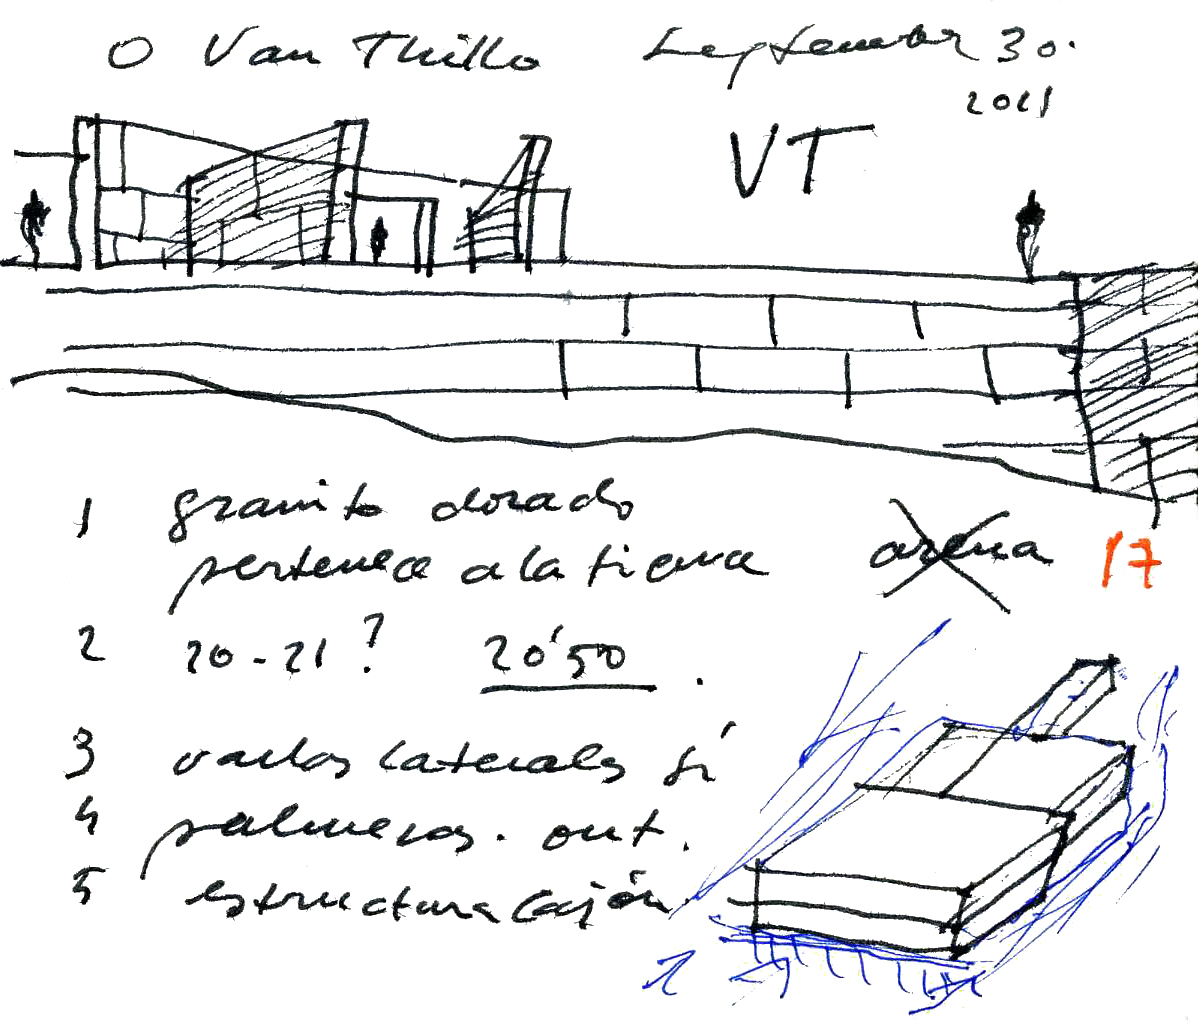 O Van Thillo September 30.
2021
VT
1 granito dorado
pertenece a la tierra arena 17
2 20-21? 20'50.
3 vanos laterales sí
4 palmeras. out.
5 estructura cajón.